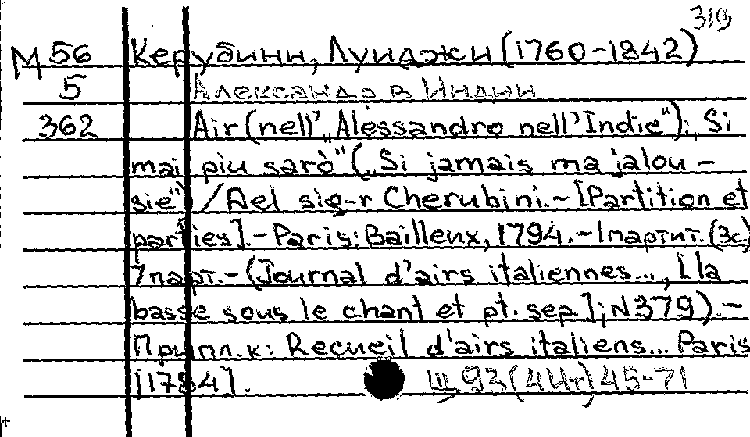 319
М 56 Керубини, Луиджи (1760-1842)
5 Александр в Индии
362 Air (nell' „Alessandro nell'Indie"); Si
mai piu sarò" („Si jamais ma jalou-
sie") / Del sig-r Cherubini.- [Partition et
parties].- Paris: Bailleux, 1794.- 1 партит. (3с)
7 парт.- (Journal d'airs italiennes..., [la
basse sous le chant et pt. sep.]; N379).-
Припл. к: Recueil d'airs italiens... Paris
[1784]. Ш 93 (4Ит) 45-71